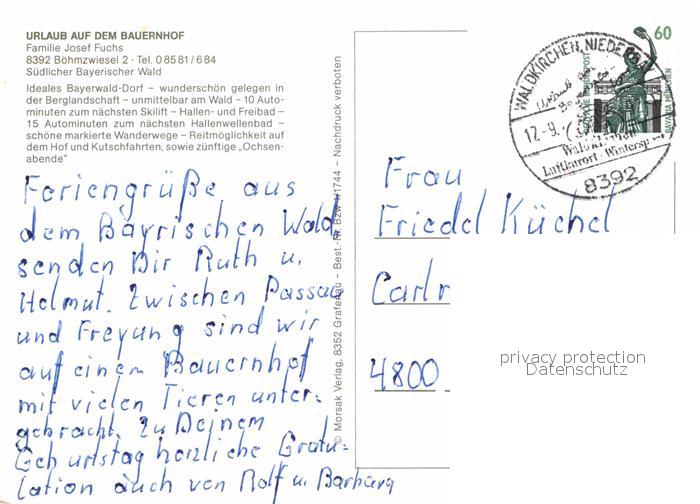 URLAUB AUF DEM BAUERNHOF
Familie Josef Fuchs
8392 Böhmzwiesel 2 · Tel. 0 85 81 / 6 84
Südlicher Bayerischer Wald
Ideales Bayerwald-Dorf – wunderschön gelegen in
der Berglandschaft – unmittelbar am Wald – 10 Auto-
minuten zum nächsten Skilift – Hallen- und Freibad –
15 Autominuten zum nächsten Hallenwellenbad –
schöne markierte Wanderwege – Reitmöglichkeit auf
dem Hof und Kutschfahrten, sowie zünftige „Ochsen-
abende"
Feriengrüße aus
dem Bayrischen Wald
senden Dir Ruth u.
Helmut. Zwischen Passau
und Freyung sind wir
auf einem Bauernhof
mit vielen Tieren unter-
gebracht. Zu Deinem
Geburtstag herzliche Gratu-
lation auch von Rolf u. Barbara
© Morsak Verlag, 8352 Grafenau – Best.-Nr. Bzw 4/1744 – Nachdruck verboten
60
BAVARIA MÜNCHEN
WALDKIRCHEN, NIEDERB
17.-9.
Luftkurort · Wintersp
8392
Frau
Friedel Küchel
Carlr
4800
privacy protection
Datenschutz